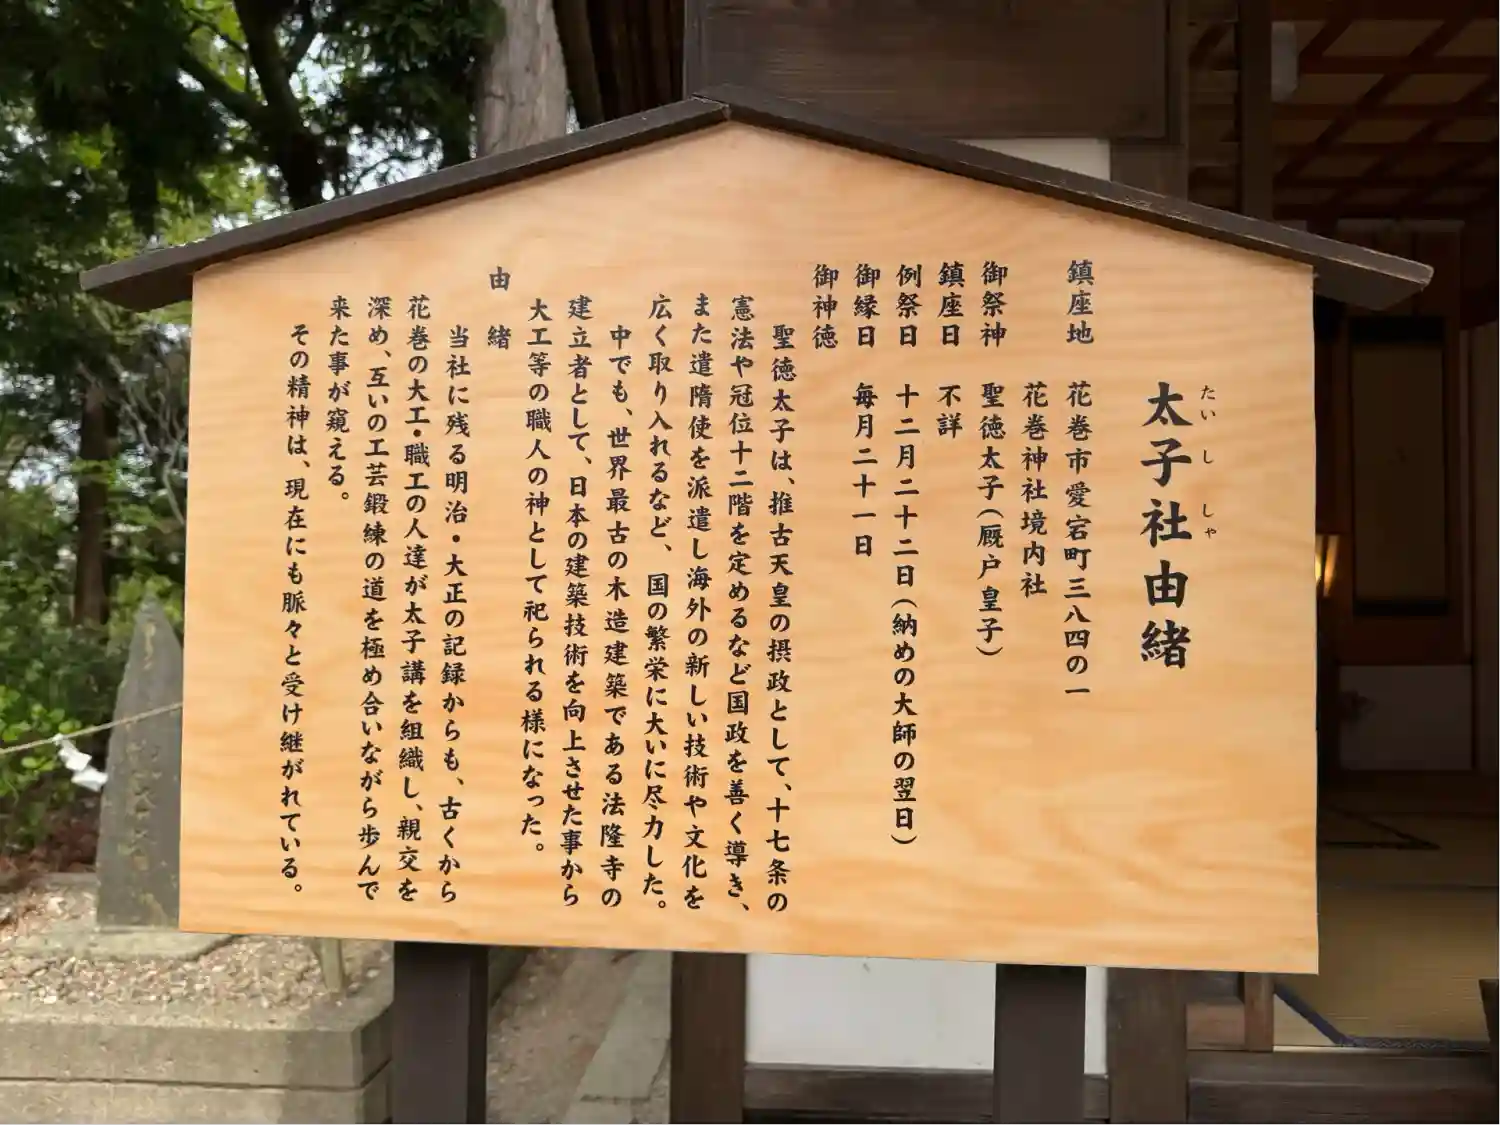 太子社由緒
たいし しゃ
鎮座地 花巻市愛宕町三八四の一
花巻神社境内社
御祭神 聖徳太子(厩戸皇子)
鎮座日 不詳
例祭日 十二月二十二日(納めの大師の翌日)
御縁日 毎月二十一日
御神徳
聖徳太子は、推古天皇の摂政として、十七条の
憲法や冠位十二階を定めるなど国政を善く導き、
また遣隋使を派遣し海外の新しい技術や文化を
広く取り入れるなど、国の繁栄に大いに尽力した。
中でも、世界最古の木造建築である法隆寺の
建立者として、日本の建築技術を向上させた事から
大工等の職人の神として祀られる様になった。
由緒
当社に残る明治・大正の記録からも、古くから
花巻の大工・職工の人達が太子講を組織し、親交を
深め、互いの工芸鍛練の道を極め合いながら歩んで
来た事が窺える。
その精神は、現在にも脈々と受け継がれている。